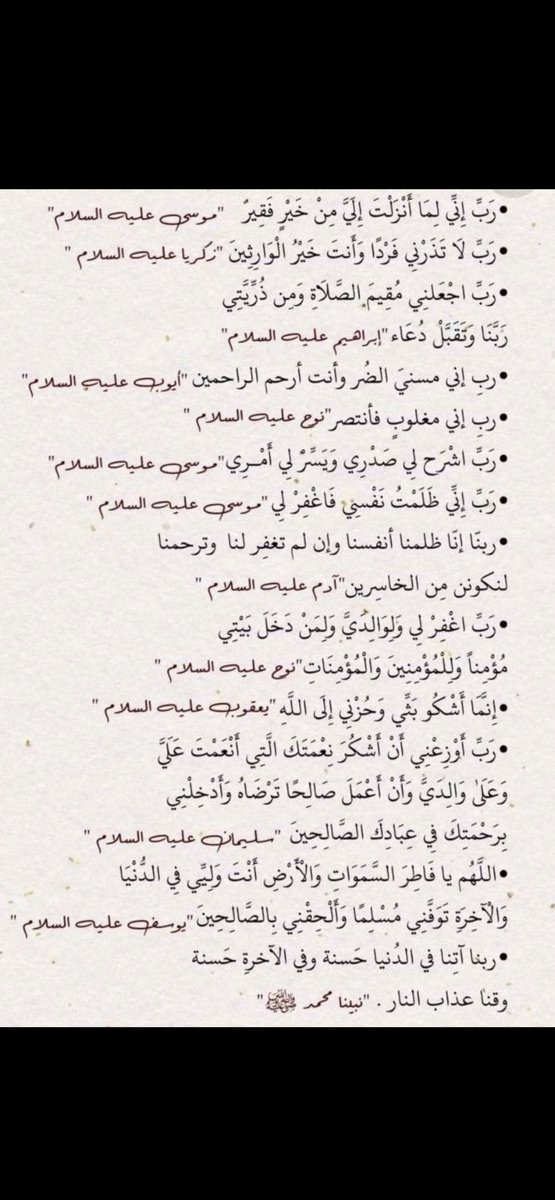 •رَبِّ إِنِّي لِمَا أَنْزَلْتَ إِلَيَّ مِنْ خَيْرٍ فَقِيرٌ "موسى عليه السلام"
•رَبِّ لَا تَذَرْنِي فَرْدًا وَأَنتَ خَيْرُ الْوَارِثِينَ "زكريا عليه السلام "
•رَبِّ اجْعَلنِي مُقِيمَ الصَّلَاةِ وَمِن ذُرِّيَّتِي
رَبَّنَا وَتَقَبَّلْ دُعَاء "إبراهيم عليه السلام"
•ربِ إني مسنيَ الضُر وأنت أرحم الراحمين "أيوب عليه السلام"
•ربِ إني مغلوبٍ فأنتصر "نوح عليه السلام "
•رَبِّ اشْرَح لِي صَدْرِي وَيَسِّرْ لِي أَمْـرِي "موسى عليه السلام"
•رَبِّ إِنِّي ظَلَمْتُ نَفْسِي فَاغْفِرْ لِي "موسى عليه السلام "
•ربنّا إنّا ظلمنا أنفسنا وإن لم تغفِر لنا وترحمنا
لنكونن مِن الخاسِرين "آدم عليه السلام "
•رَبِّ اغْفِرْ لِي وَلِوَالِدَيَّ وَلِمَنْ دَخَلَ بَيْتِي
مُؤْمِناً وَلِلْمُؤْمِنِينَ وَالْمُؤْمِنَاتِ "نوح عليه السلام "
•إِنَّمَا أَشْكُو بَثِّي وَحُزْنِي إِلَى اللَّهِ "يعقوب عليه السلام "
•رَبِّ أَوْزِعْنِي أَنْ أَشْكُرَ نِعْمَتَكَ الَّتِي أَنْعَمْتَ عَلَيَّ
وَعَلَىٰ وَالِدَيَّ وَأَنْ أَعْمَلَ صَالِحًا تَرْضَاهُ وَأَدْخِلْنِي
بِرَحْمَتِكَ فِي عِبَادِكَ الصَّالِحِينَ "سليمان عليه السلام "
•اللَّهُم يا فَاطِرَ السَّمَوَاتِ وَالْأَرْضِ أَنْتَ وَلِيِّي فِي الدُّنْيَا
وَالْآخِرَةِ تَوَفَّنِي مُسْلِمًا وَأَلْحِقْنِي بِالصَّالِحِينَ "يوسف عليه السلام "
•ربنا آتِنا في الدُنيا حَسنة وفي الآخرةِ حَسنة
وقنا عذاب النار . "نبينا محمد ﷺ "